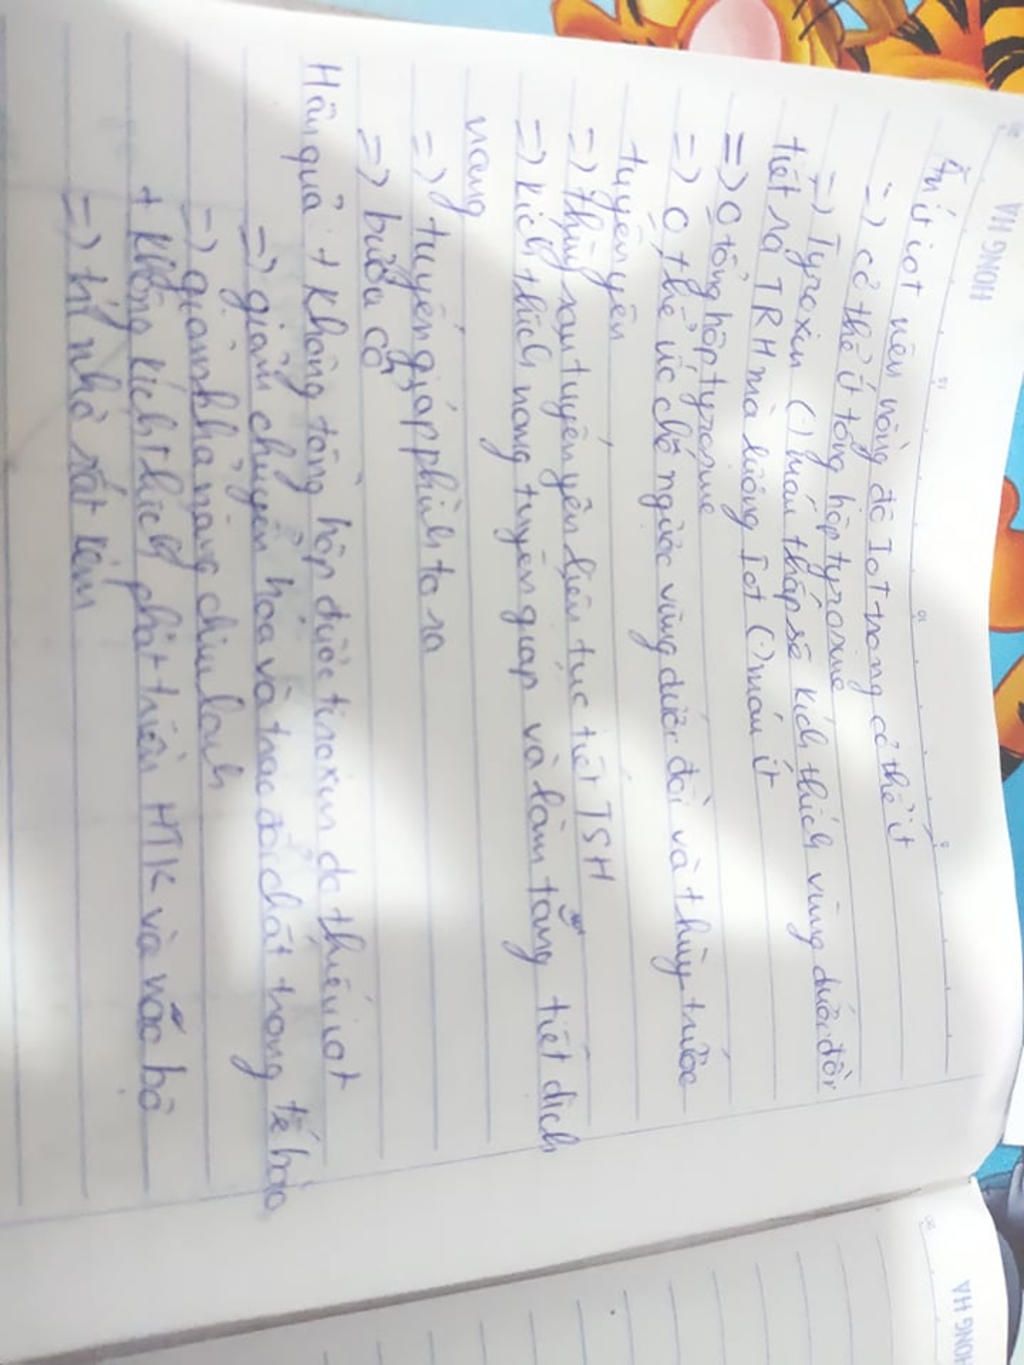 HONG HA
Ăn ít iot nên nồng độ Iot trong cơ thể ít
=) cơ thể ít tổng hợp tyroxine
=) Tyroxin (.) máu thấp sẽ kích thích vùng dưới đồi
tiết ra TRH mà lượng Iot (.) máu ít
=) 0 tổng hợp tyroxine
=) 0 thể ức chế ngược vùng dưới đồi và thùy trước
tuyến yên
=) thùy sau tuyến yên liên tục tiết TSH
=) kích thích nang tuyến giáp và làm tăng tiết dịch
nang
=) tuyến giáp phình to ra
=) bướu cổ
Hậu quả: + Không tổng hợp được tiroxin do thiếu iot
=) giảm chuyển hóa và trao đổi chất trong tế bào
=) giảm khả năng chịu lạnh
+ không kích thích phát triển HTK và não bộ
=) trí nhớ rất kém
HONG HA